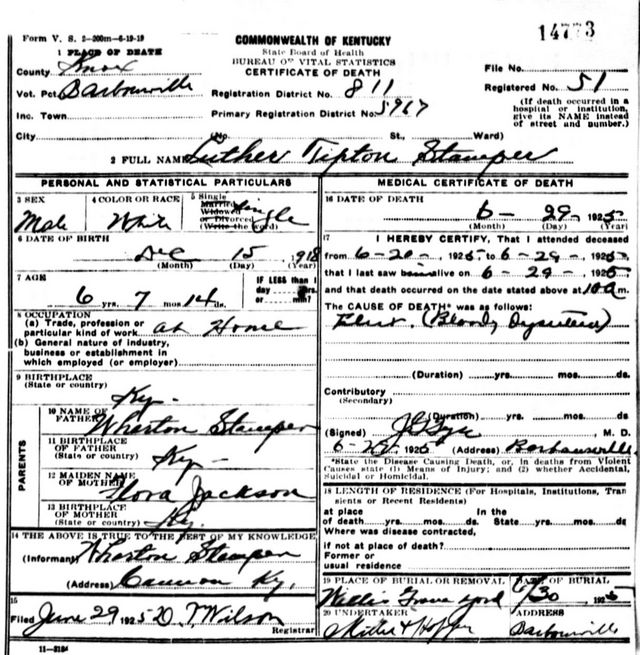 Form V. S. 2-200m-6-19-19
14773
COMMONWEALTH OF KENTUCKY
State Board of Health
BUREAU OF VITAL STATISTICS
CERTIFICATE OF DEATH
1 PLACE OF DEATH
County Knox
Vot. Pct. Barbourville
Inc. Town
City (No. St., Ward)
Registration District No. 811
Primary Registration District No. 5967
File No.
Registered No. 51
(If death occurred in a hospital or institution, give its NAME instead of street and number.)
2 FULL NAME Luther Tipton Stamper
PERSONAL AND STATISTICAL PARTICULARS
3 SEX
Male
4 COLOR OR RACE
White
5 Single
Married
Widowed
or Divorced
(Write the word)
Single
6 DATE OF BIRTH
Dec 15 1918
(Month) (Day) (Year)
7 AGE
6 yrs. 7 mos 14 ds.
IF LESS than 1
day hrs
or min?
8 OCCUPATION
(a) Trade, profession or
particular kind of work at Home
(b) General nature of industry,
business or establishment in
which employed (or employer)
9 BIRTHPLACE
(State or country) Ky.
PARENTS
10 NAME OF
FATHER Wharton Stamper
11 BIRTHPLACE
OF FATHER
(State or country) Ky
12 MAIDEN NAME
OF MOTHER Flora Jackson
13 BIRTHPLACE
OF MOTHER
(State or country) Ky.
14 THE ABOVE IS TRUE TO THE BEST OF MY KNOWLEDGE
(Informant) Wharton Stamper
(Address) Cannon Ky.
15
Filed June 29 1925 D. T. Wilson
Registrar
11-3184
MEDICAL CERTIFICATE OF DEATH
16 DATE OF DEATH
6- 29- 1925
(Month) (Day) (Year)
17 I HEREBY CERTIFY, That I attended deceased
from 6-20-, 1925 to 6-29-, 1925
that I last saw him alive on 6-29-, 1925
and that death occurred on the date stated above at 10 a m.
The CAUSE OF DEATH* was as follows:
(Bloody Dysentery)
(Duration) yrs. mos. ds.
Contributory
(Secondary)
(Duration) yrs. mos. ds
(Signed) , M. D.
6-29, 1925 (Address) Barbourville
*State the Disease Causing Death, or, in deaths from Violent
Causes state (1) Means of Injury; and (2) whether Accidental,
Suicidal or Homicidal.
18 LENGTH OF RESIDENCE (For Hospitals, Institutions, Tran
sients or Recent Residents)
at place In the
of death yrs. mos. ds. State yrs. mos. ds.
Where was disease contracted,
if not at place of death?
Former or
usual residence
19 PLACE OF BURIAL OR REMOVAL
DATE OF BURIAL
Grave yard 6/30 1925
20 UNDERTAKER
ADDRESS
Barbourville